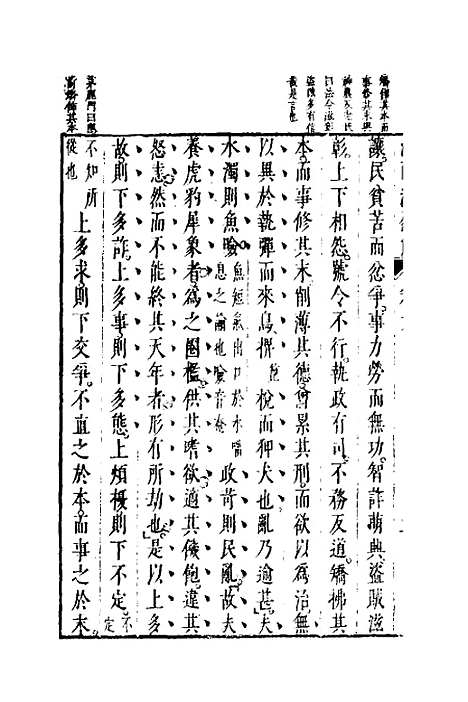 矯拂其本而
事修其末與
神農
法令滋彰
盜賊多有信
哉是言也
讓民貧苦而忿爭事力勞而無功智詐萌興盜賊滋
彰上下相怨號令不行執政有司不務反道矯拂其
本而事修其末削薄其德曾累其刑而欲以爲治無
以異於執彈而來鳥捭梲而狎犬也亂乃逾甚夫
水濁則魚噞魚短氣出口於水喘
息之諭也噞音
政苛則民亂故夫
養虎豹犀象者爲之圈檻供其嗜欲適其饑飽違其
怒恚然而不能終其天年者形有所劫也是以上多
故則下多詐上多事則下多態上煩擾則下不定不定
不知所
從也
上多求則下交爭不直之於本而事之於末
茅鹿門曰
矯拂其本